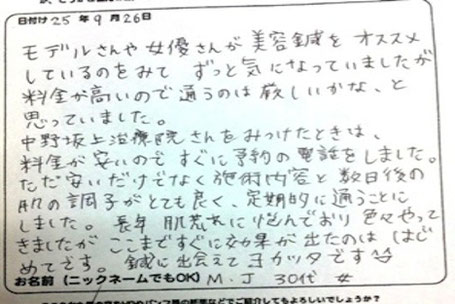 日付け 25年 9月26日
モデルさんや女優さんが美容鍼をオススメ
しているのをみて ずっと気になっていましたが
料金が高いので通うのは厳しいかな、と
思っていました。
中野坂上治療院さんをみつけたときは、
料金が安いのですぐに予約の電話をしました。
ただ安いだけでなく施術内容と数日後の
肌の調子がとても良く、定期的に通うことに
しました。長年 肌荒れに悩んでおり 色々やって
きましたが ここまですぐに効果が出たのは はじ
めてです。 鍼に出会えてヨカッタです
お名前(ニックネームでもOK) M.J 30代 女